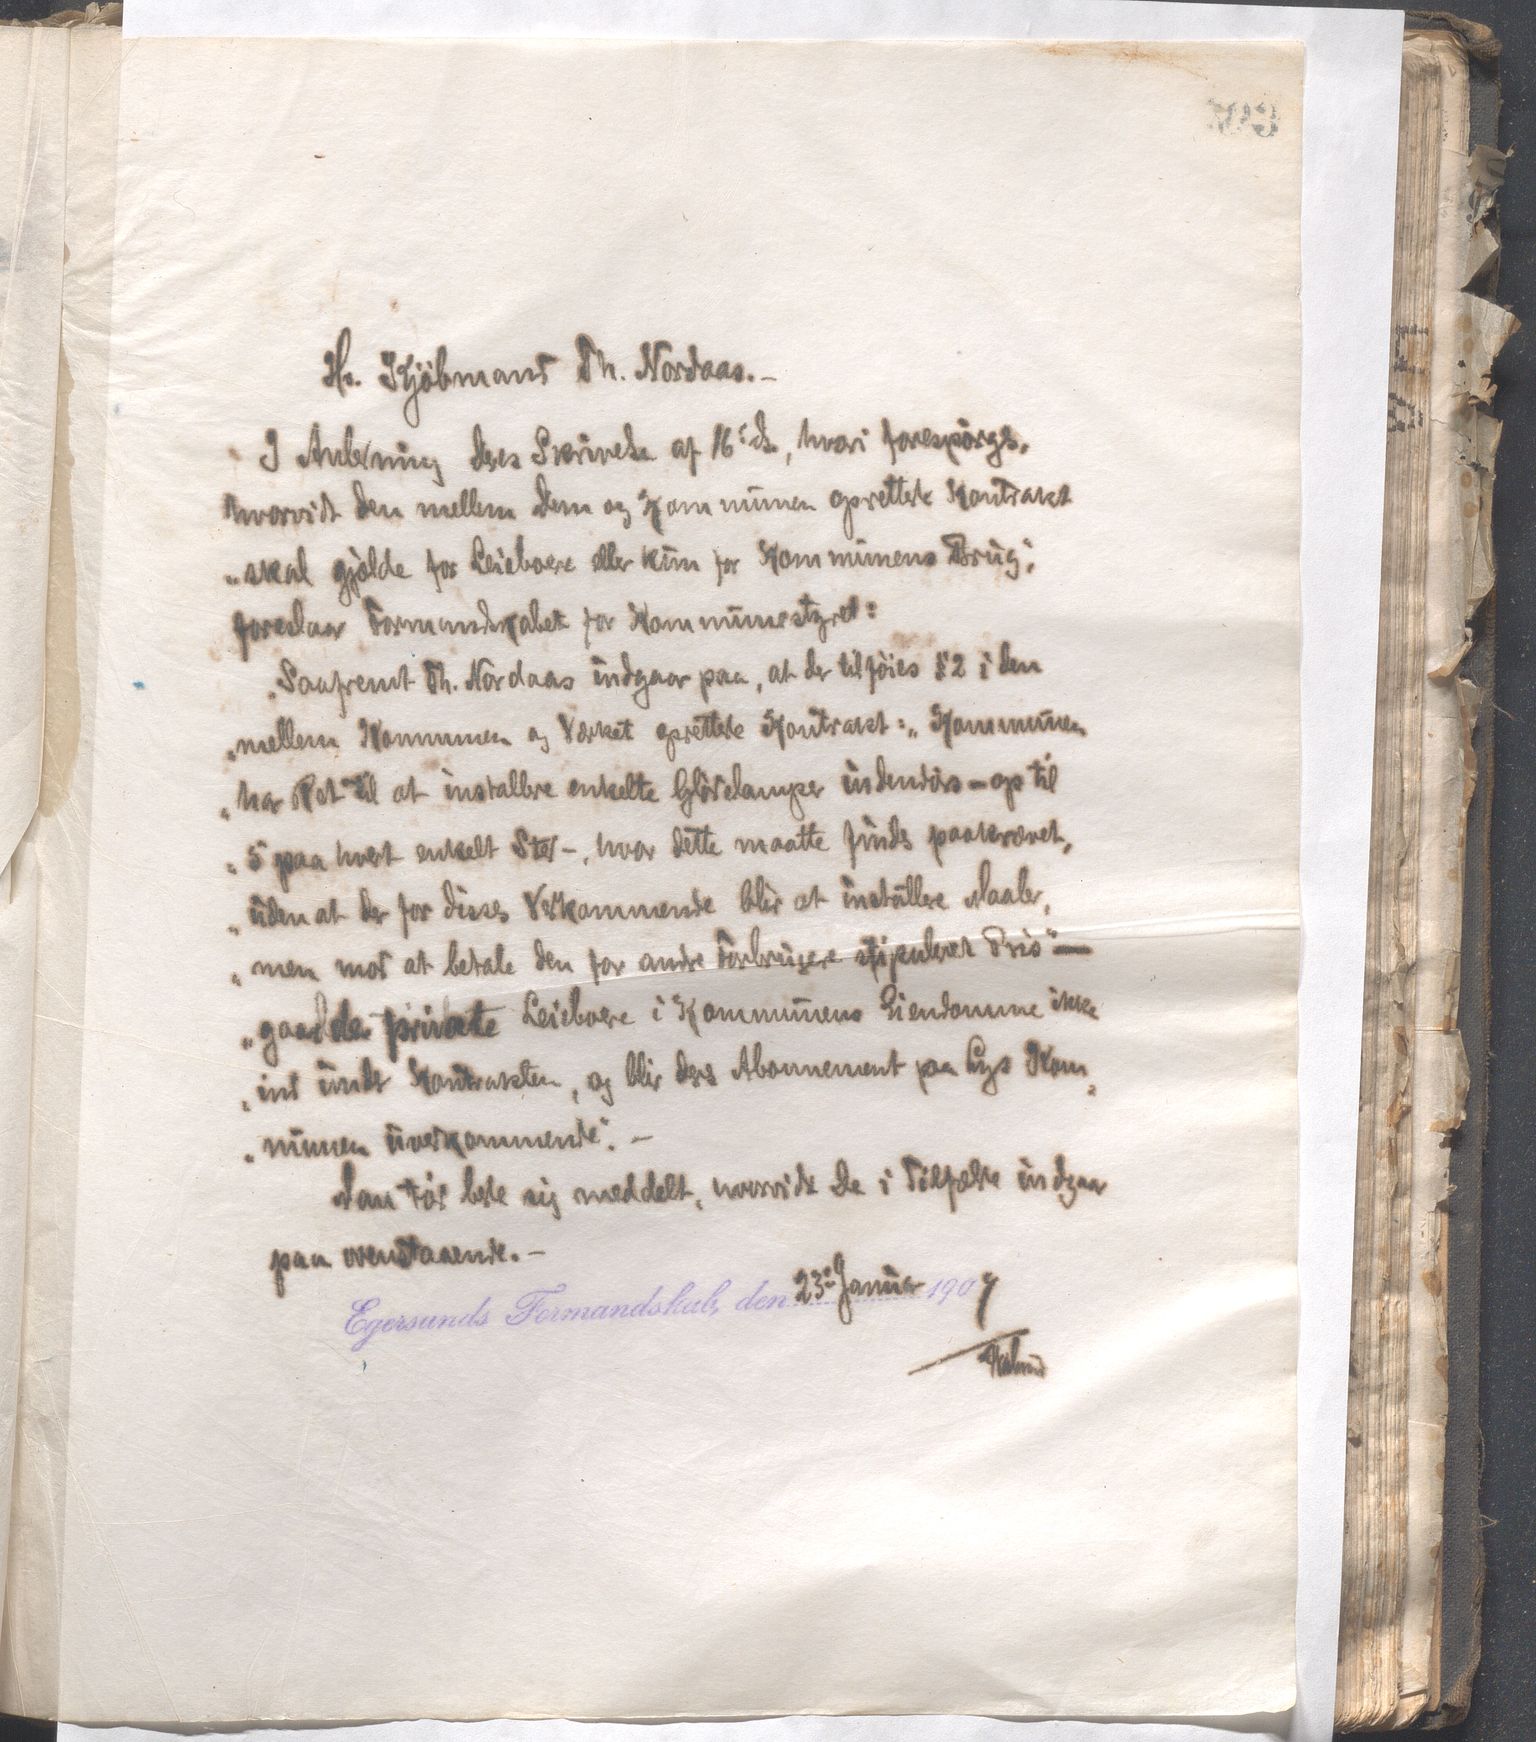 Hr. Kjöbmand Th. Nordaas. –
I Anledning deres Skrivelse af 16de ds, hvori forespörges,
hvorvidt den mellem Dem og Kommunen oprettede Kontrakt
„skal gjælde for Leieboere eller kun for Kommunens Brug",
foreslaar Formandskabet for Kommunestyret:
„Saafremt Th. Nordaas indgaar paa, at der tilföies § 2 i den
„mellem Kommunen og Værket oprettede Kontrakt: „Kommunen
„har Ret til at installere enkelte Glödelamper indendörs – op til
„5 paa hvert enkelt Sted –, hvor dette maatte findes paakrævet,
„uden at der for disses Vedkommende blir at installere Maaler,
„men mod at betale den for andre Forbrugere stipuleret Pris" –
„gaar de private Leieboere i Kommunens Eiendomme ikke
„ind under Kontrakten, og blir deres Abonnement paa Lys Kom„
„munen uvedkommende". –
Man tör bede sig meddelt, hvorvidt De i Tilfælde indgaar
paa ovenstaaende. –
Egersunds Formandskab, den 23de Januar 1907